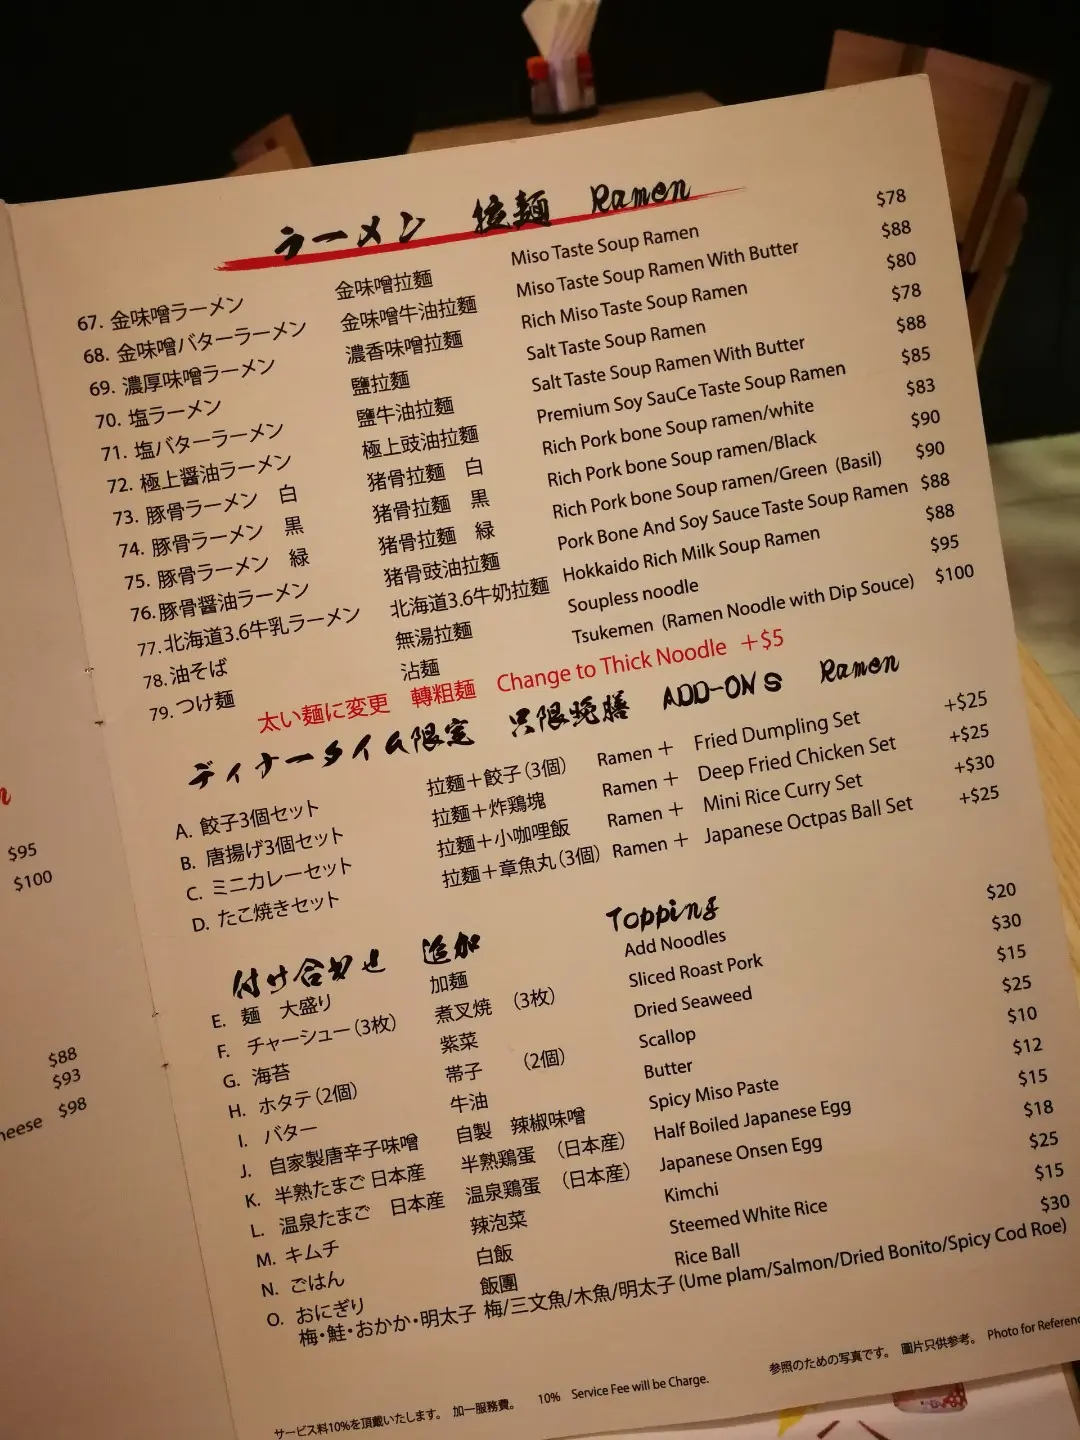 ラーメン 拉麺 Ramen
67. 金味噌ラーメン 金味噌拉麵 Miso Taste Soup Ramen $78
68. 金味噌バターラーメン 金味噌牛油拉麵 Miso Taste Soup Ramen With Butter $88
69. 濃厚味噌ラーメン 濃香味噌拉麵 Rich Miso Taste Soup Ramen $80
70. 塩ラーメン 鹽拉麵 Salt Taste Soup Ramen $78
71. 塩バターラーメン 鹽牛油拉麵 Salt Taste Soup Ramen With Butter $88
72. 極上醤油ラーメン 極上豉油拉麵 Premium Soy SauCe Taste Soup Ramen $85
73. 豚骨ラーメン 白 猪骨拉麵 白 Rich Pork bone Soup ramen/white $83
74. 豚骨ラーメン 黒 猪骨拉麵 黒 Rich Pork bone Soup ramen/Black $90
75. 豚骨ラーメン 緑 猪骨拉麵 緑 Rich Pork bone Soup ramen/Green (Basil) $90
76. 豚骨醤油ラーメン 猪骨豉油拉麵 Pork Bone And Soy Sauce Taste Soup Ramen $88
77. 北海道3.6牛乳ラーメン 北海道3.6牛奶拉麵 Hokkaido Rich Milk Soup Ramen $88
78. 油そば 無湯拉麵 Soupless noodle $95
79. つけ麺 沾麺 Tsukemen (Ramen Noodle with Dip Souce) $100
太い麺に変更 轉粗麺 Change to Thick Noodle +$5
ディナータイム限定 只限晚膳 ADD-ONS Ramen
A. 餃子3個セット 拉麺+餃子(3個) Ramen + Fried Dumpling Set +$25
B. 唐揚げ3個セット 拉麺+炸鶏塊 Ramen + Deep Fried Chicken Set +$25
C. ミニカレーセット 拉麺+小咖喱飯 Ramen + Mini Rice Curry Set +$30
D. たこ焼きセット 拉麺+章魚丸(3個) Ramen + Japanese Octpas Ball Set +$25
付け合わせ 追加 Topping
E. 麺 大盛り 加麺 Add Noodles $20
F. チャーシュー(3枚) 煮叉焼 (3枚) Sliced Roast Pork $30
G. 海苔 紫菜 Dried Seaweed $15
H. ホタテ(2個) 帯子 (2個) Scallop $25
I. バター 牛油 Butter $10
J. 自家製唐辛子味噌 自製 辣椒味噌 Spicy Miso Paste $12
K. 半熟たまご 日本産 半熟鶏蛋 (日本産) Half Boiled Japanese Egg $15
L. 温泉たまご 日本産 温泉鶏蛋 (日本産) Japanese Onsen Egg $18
M. キムチ 辣泡菜 Kimchi $25
N. ごはん 白飯 Steemed White Rice $15
O. おにぎり 飯團 Rice Ball $30
梅・鮭・おかか・明太子 梅/三文魚/木魚/明太子 (Ume plam/Salmon/Dried Bonito/Spicy Cod Roe)
参照のための写真です。 圖片只供参考。 Photo for Referenc
サービス料10%を頂戴いたします。 加一服務費。 10% Service Fee will be Charge.
$95
$100
$88
$93
heese $98